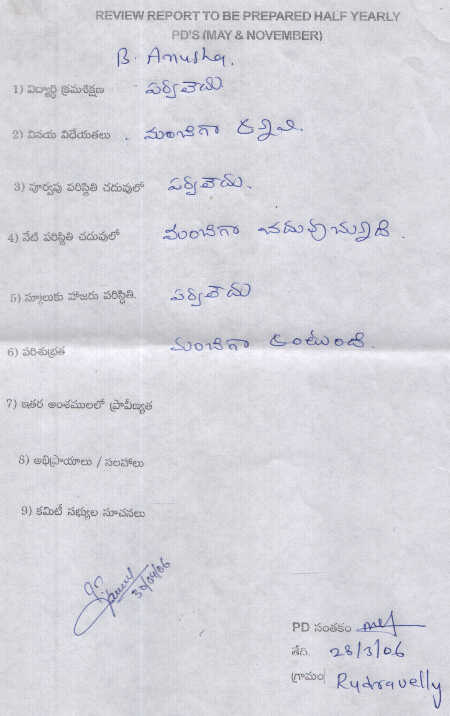 REVIEW REPORT TO BE PREPARED HALF YEARLY
PD'S (MAY & NOVEMBER)
B. Anusha.
1) విద్యార్థి క్రమశిక్షణ పర్వాలేదు
2) వినయ విధేయతలు . మంచిగా ఉన్నవి.
3) పూర్వపు పరిస్థితి చదువులో పర్వాలేదు.
4) నేటి పరిస్థితి చదువులో మంచిగా చదువుచున్నది.
5) స్కూలుకు హాజరు పరిస్థితి. పర్వాలేదు
6) పరిశుభ్రత మంచిగా ఉంటుంది.
7) ఇతర అంశములలో ప్రావీణ్యత
8) అభిప్రాయాలు / సలహాలు
9) కమిటీ సభ్యుల సూచనలు
30/04/06
PD సంతకం
తేది. 28/3/06
గ్రామం Rudravelly